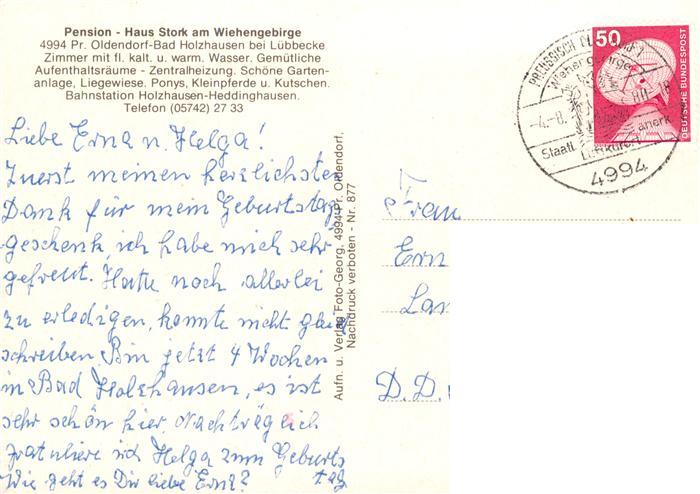 Pension - Haus Stork am Wiehengebirge
4994 Pr. Oldendorf-Bad Holzhausen bei Lübbecke
Zimmer mit fl. kalt. u. warm. Wasser. Gemütliche
Aufenthaltsräume - Zentralheizung. Schöne Garten-
anlage, Liegewiese. Ponys, Kleinpferde u. Kutschen.
Bahnstation Holzhausen-Heddinghausen.
Telefon (05742) 27 33
Liebe Erna u. Helga!
Zuerst meinen herzlichsten
Dank für mein Geburtstag
geschenk, ich habe mich sehr
gefreut. Hatte noch allerlei
zu erledigen, konnte nicht gleich
schreiben Bin jetzt 4 Wochen
in Bad Holzhausen, es ist
sehr schön hier, Nachträglich
gratuliere ich Helga zum Geburts
tag
Wie geht es Dir liebe Erna?
Aufn. u. Verlag Foto-Georg, 4994 Pr. Oldendorf,
Nachdruck verboten - Nr. 877
50
DEUTSCHE BUNDESPOST
PREUSSISCH
Wiehengebirge
-4.-8.
Staatl. anerk.
Luftkurort
4994
Frau
Ern
Lan
D.D.